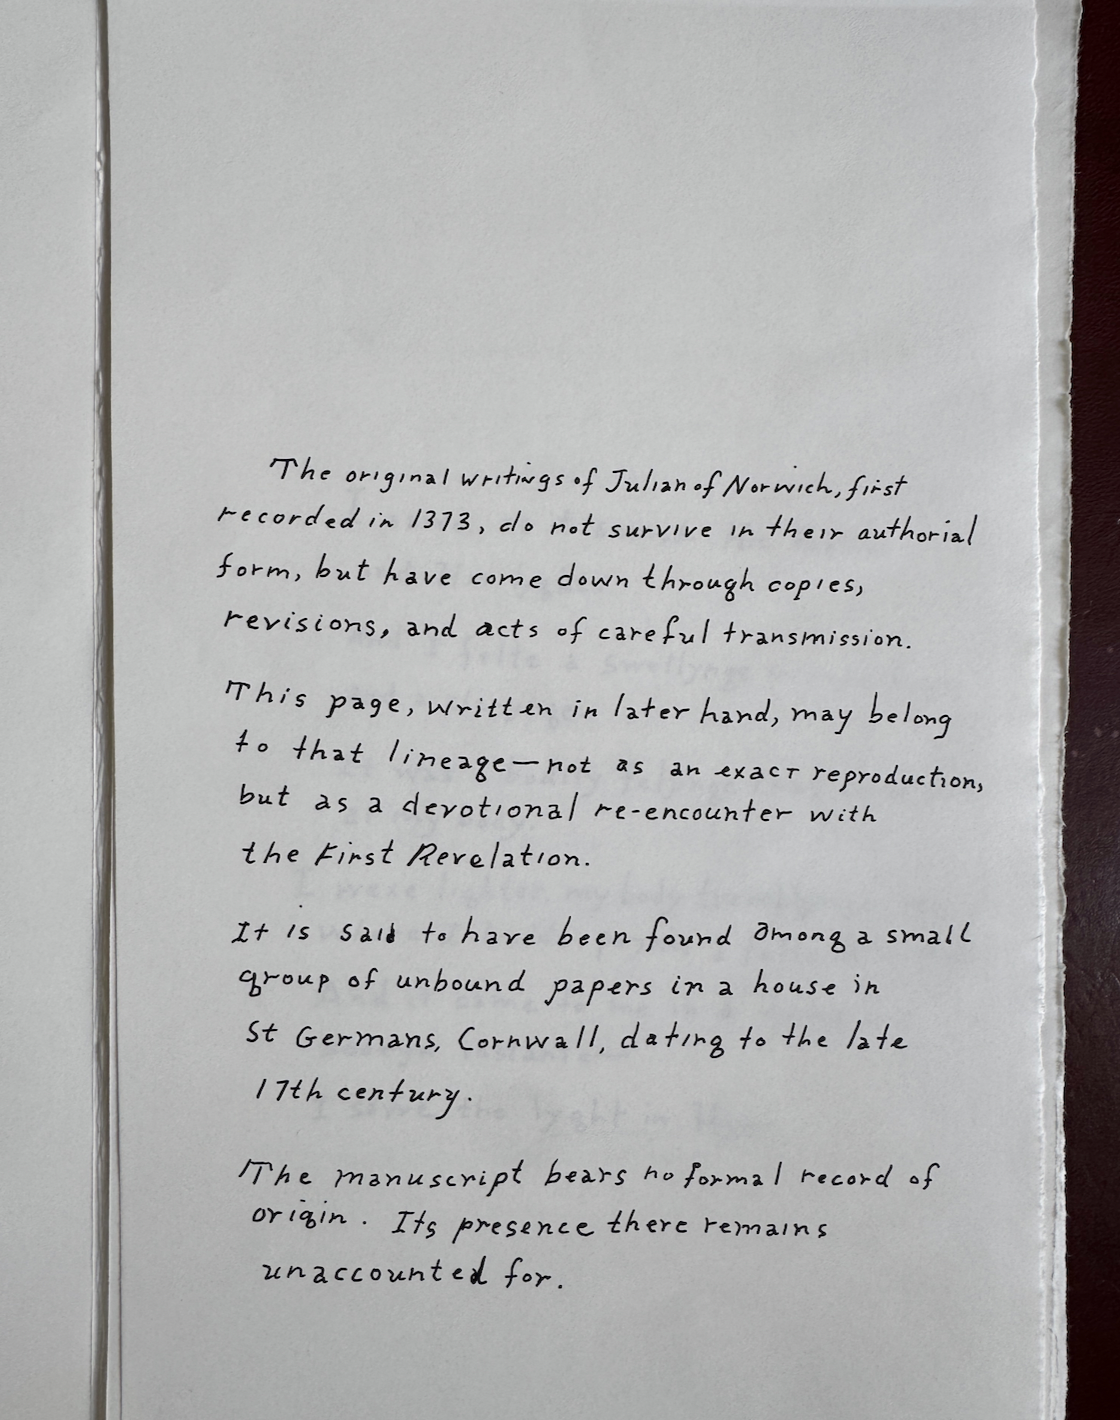 The original writings of Julian of Norwich, first
recorded in 1373, do not survive in their authorial
form, but have come down through copies,
revisions, and acts of careful transmission.
This page, written in later hand, may belong
to that lineage—not as an exact reproduction,
but as a devotional re-encounter with
the First Revelation.
It is said to have been found among a small
group of unbound papers in a house in
St Germans, Cornwall, dating to the late
17th century.
The manuscript bears no formal record of
origin. Its presence there remains
unaccounted for.